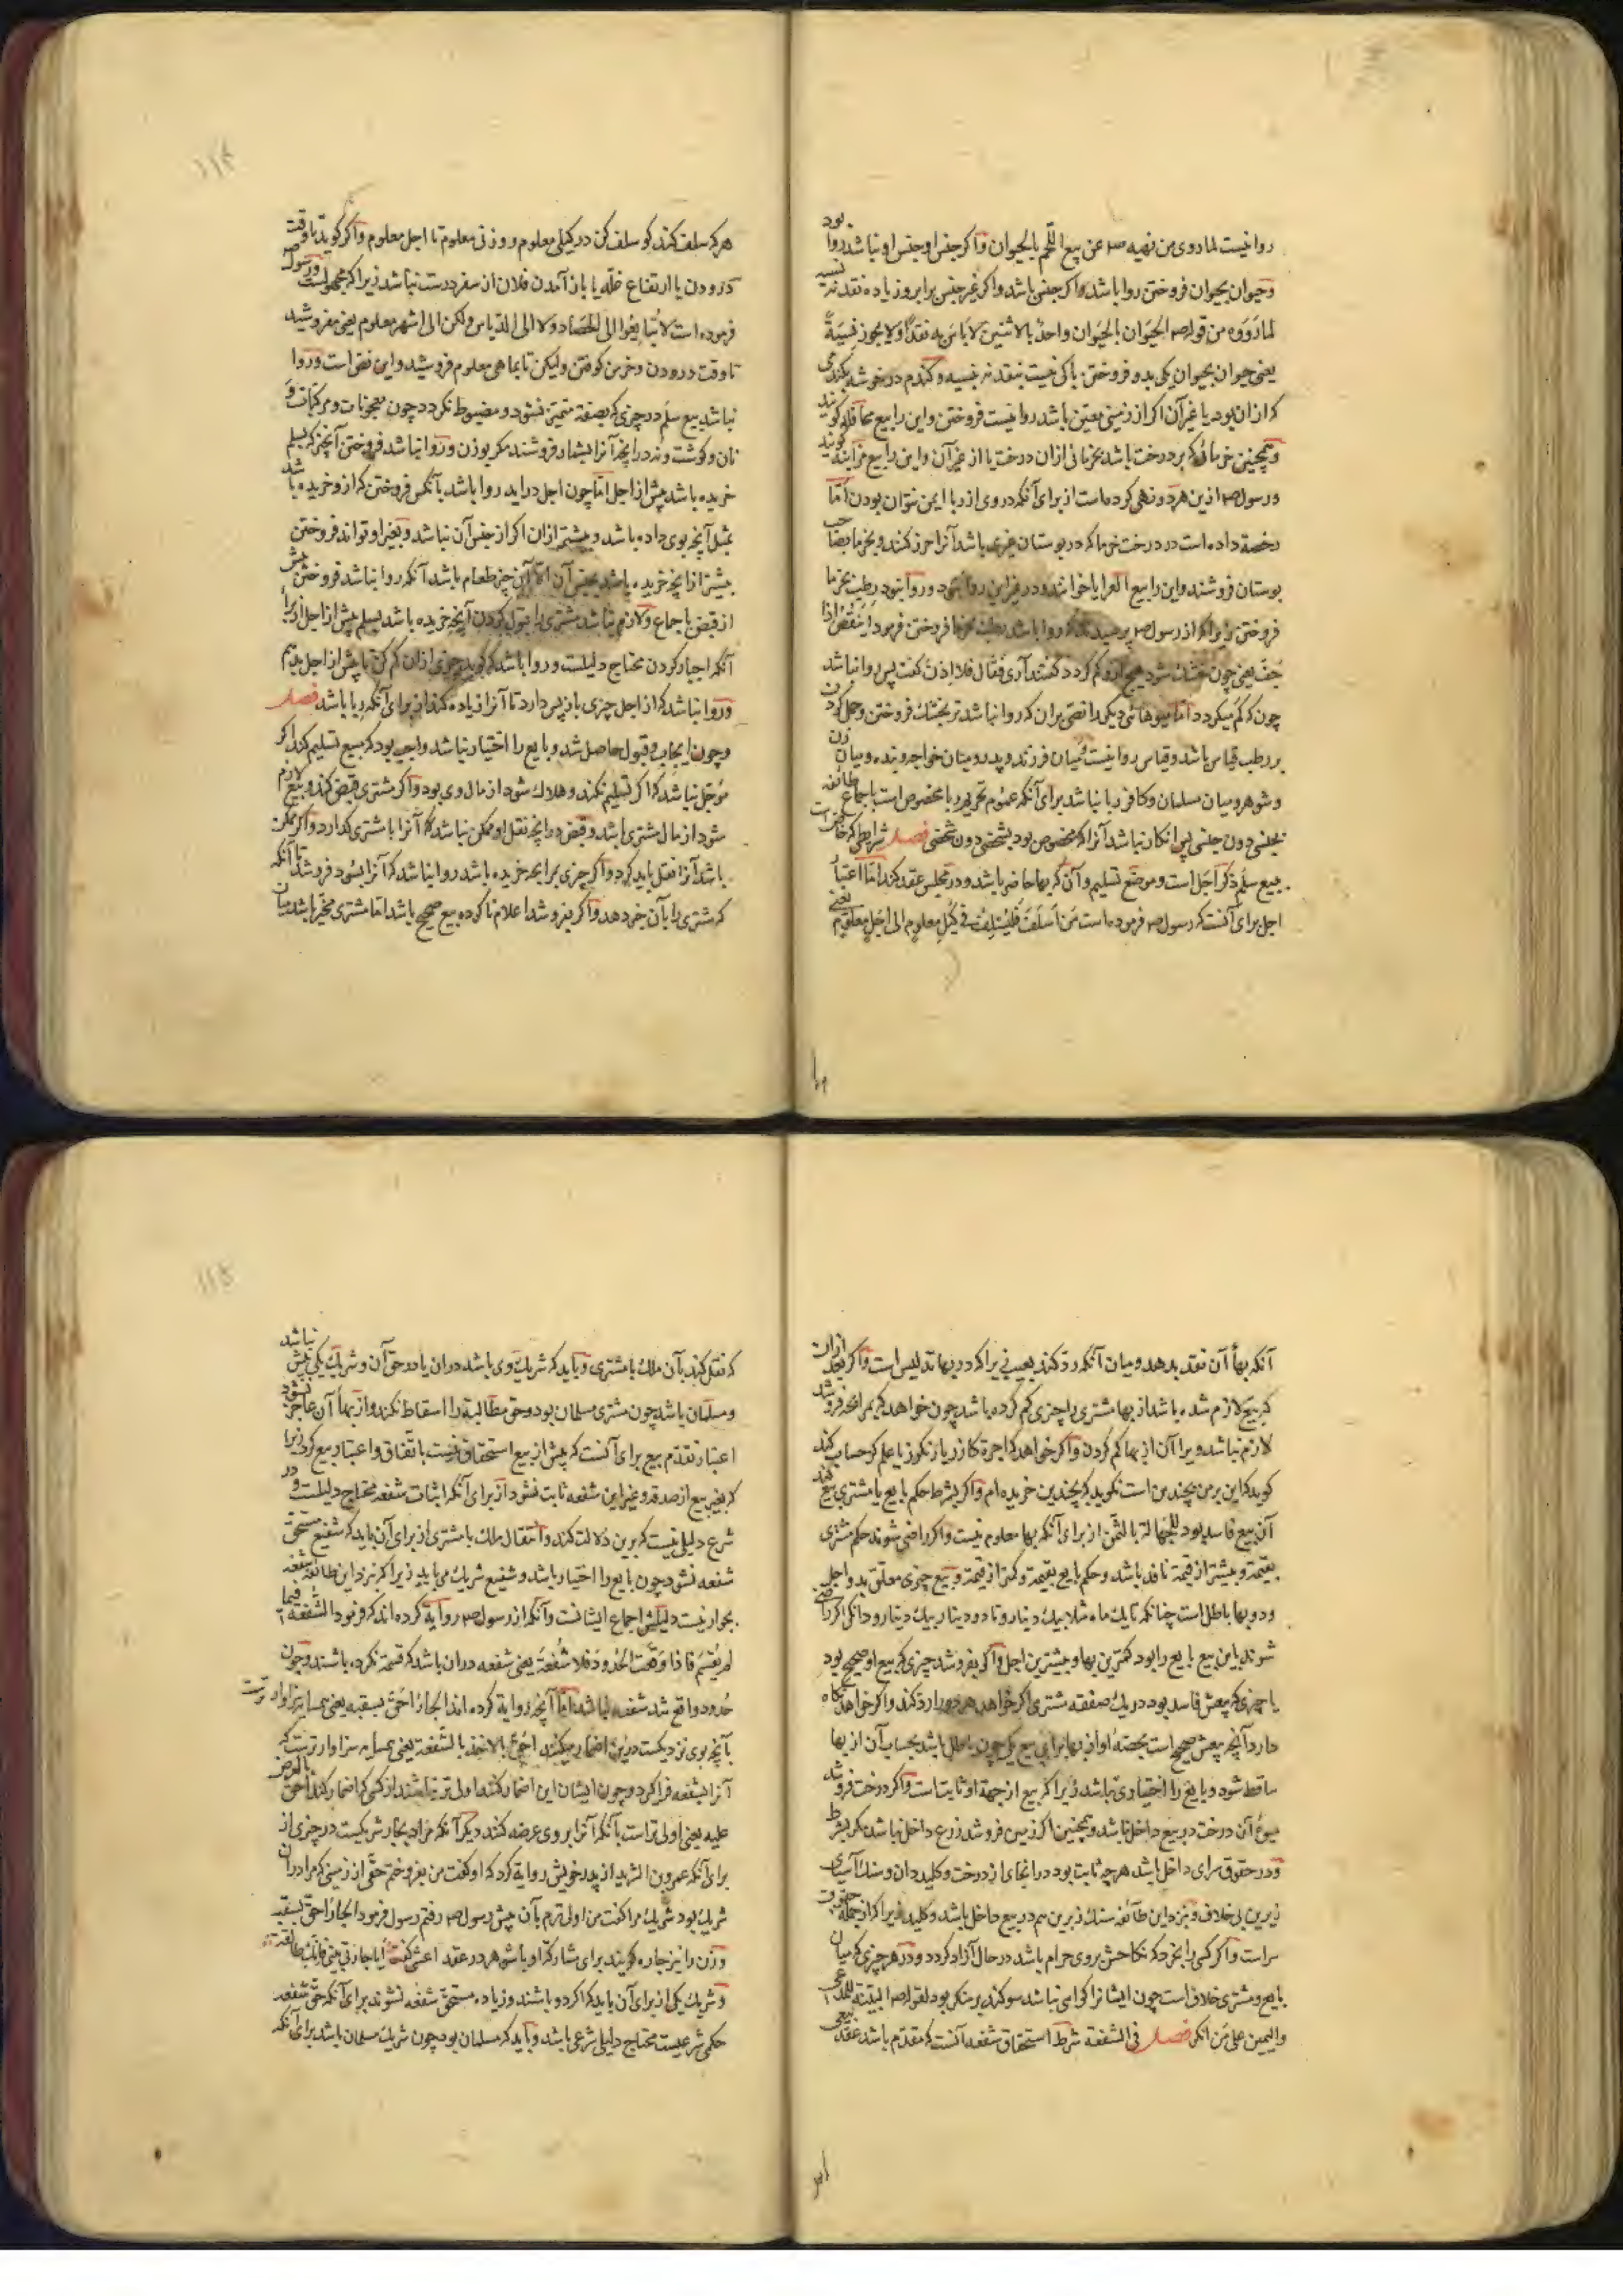 روا نیست لما روی من نهیه صم عن بیع اللحم بالحیوان واکر جنس او جنس او نباشد روا بود
وحیوان بحیوان فروختن روا باشد اکر جنس باشد واکر غیر جنس برابر وزیاده نقد نه نسیه
لما رووه من قوله صم الحیوان بالحیوان واحد بالاثنین لا باس به نقداً ولا یجوز نسیةً
یعنی حیوان بحیوان یکی بدو فروختن باکی نیست بنقد نه نسیه وکندم در خوشه بکندمی
که ازان بود یا غیر آن اکر از زمینی معین باشد روا نیست فروختن واین را بیع محاقله کویند
وهمچنین خرمائی که بر درخت باشد بخرمائی ازان درخت یا از غیر آن واین را بیع مزابنه کویند
ورسول صم ازین هر دو نهی کرده است از برای آنکه در وی از ربا ایمن نتوان بودن اما
رخصة داده است در درخت خرما که در بوستان غیری باشد آنرا حزر کنند وبخرما بصاحب
بوستان فروشند واین را بیع العرایا خوانند ودر غیر این روا نبود وروا نبود رطب بخرما
فروختن زیرا که از رسول صم پرسیدند که روا باشد رطب بخرما فروختن فرمود اینقص اذا
جف یعنی چون خشک شود هیچ ازو کم کردد کفتند آری فقال فلا اذن کفت پس روا نباشد
چون که کم میکردد اما میوهائی دیکر را نصی بران که روا نباشد تر بخشک فروختن وحمل کردن
بر رطب قیاس باشد وقیاس روا نیست ومیان فرزند وپدر ومیان خواجه وبنده ومیان زن
وشوهر ومیان مسلمان وکافر ربا نباشد برای آنکه عموم تحریم ربا مخصوص است باجماع طائفه
بجنسی دون جنسی پس انکار نباشد آنرا که مخصوص بود بشخصی دون شخصی فصل شرایطی که خاص است
ببیع سلم ذکر اجل است وموضع تسلیم وآن که بها حاضر باشد ودر مجلس عقد کند اما اعتبار
اجل برای آنست که رسول صم فرموده است من اسلف فلیسلف فی کیل معلوم الی اجل معلوم یعنی
هر که سلف کند کو سلف کن در کیلی معلوم ووزنی معلوم تا اجل معلوم واکر کوید تا وقت
درودن یا ارتفاع غله یا باز آمدن فلان از سفر درست نباشد زیرا که مجهولست ورسول صم
فرموده است لا تبایعوا الی الحصاد ولا الی الدیاس ولکن الی اشهر معلوم یعنی مفروشید
تا وقت درودن وخرمن کوفتن ولیکن تا بماهی معلوم فروشید واین نص است وروا
نباشد بیع سلم در چیزی که بصفة متمیز نشود ومضبوط نکردد چون معجونات ومرکبات و
نان وکوشت ونه در انچه آنرا بشمار فروشند مکر بوزن وروا نباشد فروختن آنچیز که بسلم
خریده باشد پیش از اجل اما چون اجل در اید روا باشد بآنکس فروختن که ازو خریده باشد
بمثل آنچه بوی داده باشد وبیشتر ازان اکر از جنس آن نباشد وبغیر او تواند فروختن
بیشتر از انچه خریده باشد بجنس آن الا آن چیز طعام باشد آنکه روا نباشد فروختن پیش
از قبض باجماع ولازم نباشد مشتری را قبول کردن آنچه خریده باشد بسلم پیش از اجل از برای
آنکه اجبار کردن محتاج دلیلست وروا باشد که کوید چیزی ازان کم کن تا پیش از اجل بدهم
وروا نباشد که از اجل چیزی باز پس دارد تا آنرا زیاده کند از برای آنکه ربا باشد فصل
وچون ایجاب وقبول حاصل شد وبایع را اختیار نباشد واجب بود که مبیع تسلیم کند اکر
مؤجل نباشد که اکر تسلیم نکند وهلاک شود از مال وی بود واکر مشتری قبض کند وبیع لازم
شود از مال مشتری باشد وقبض در انچه نقل او ممکن نباشد که آنرا با مشتری کذارد واکر ممکن
باشد آنرا نقل باید کرد واکر چیزی برابحه خریده باشد روا نباشد که آنرا بسود فروشد تا آنکه
که مشتری را بآن خبر دهد واکر بفروشد اعلام ناکرده بیع صحیح باشد اما مشتری مخیر باشد میان
آنکه بهاء آن نقد بدهد ومیان آنکه رد کند بعیب زیرا که در بها تدلیس است واکر بعد ازان
که بیع لازم شده باشد از بها مشتری را چیزی کم کرده باشد چون خواهد که بمرابحه فروشد
لازم نباشد ویرا آن از بها کم کردن واکر خواهد که اجرة کازر یا رنکرز یا علم کر حساب کند
کوید که این بر من بچندین است نکوید که بچندین خریده ام واکر بشرط حکم بایع یا مشتری بیع کند
آن بیع فاسد بود للجهالة بالثمن از برای آنکه بها معلوم نیست واکر راضی شوند حکم مشتری
بقیمة وبیشتر از قیمة نافذ باشد وحکم بایع بقیمة وکمتر از قیمة وبیع چیزی معلق بدو اجل
ودو بها باطل است چنانکه تا یک ماه مثلا بیک دینار وتا دو دینار بیک دینار ودانکی اکر راضی
شوند باین بیع بایع را بود کمترین بها وبیشترین اجل واکر بفروشد چیزی که بیع او صحیح بود
با چیزی که بیعش فاسد بود در یک صفقه مشتری اکر خواهد هر دو را رد کند واکر خواهد نکاه
دارد آنچه بیعش صحیح است بحصهٔ او از بها برای بیع یکی چون باطل باشد بحساب آن از بها
ساقط شود وبایع را اختیاری نباشد زیرا که بیع از جهة او ثابت است واکر درخت فروشد
میوهٔ آن درخت در بیع داخل نباشد وهمچنین اکر زمین فروشد زرع داخل نباشد مکر بشرط
ودر حقوق سرای داخل باشد هر چه ثابت بود در انجای از درخت وکلیدان وسنک آسیای
زیرین بی خلاف ونزد این طائفه سنک زبرین هم در بیع داخل باشد وکلید زیرا که از جمله حقوق
سراست واکر کسی را بخرد که نکاحش بروی حرام باشد در حال آزاد کردد ودر هر چیزی که میان
بایع ومشتری خلاف است چون ایشانرا کواهی نباشد سوکند بر منکر بود لقوله صم البینة للمدعی
والیمین علی من انکر فصل فی الشفعة شرط استحقاق شفعه آنست که مقدم باشد عقد بیعی
که نقل کند بآن ملک با مشتری وباید که شریک وی باشد دران یا در حق آن وشریک یکی بیش نباشد
ومسلمان باشد چون مشتری مسلمان بود وحق مطالبة را اسقاط نکند واز بهاء آن عاجز نشود
اعتبار تقدم بیع برای آنست که پیش از بیع استحقاق نیست باتفاق واعتبار بیع کردن زیرا
که بغیر بیع از صدقه وغیر این شفعه ثابت نشود از برای آنکه اثبات شفعه محتاج دلیلست ودر
شرع دلیلی نیست که برین دلالت کند وانتقال ملک با مشتری از برای آن باید که شفیع مستحق
شفعه نشود چون بایع را اختیار باشد وشفیع شریک می باید زیرا که نزد این طائفه شفعه
بجوار نیست دلیلش اجماع ایشانست وآنکه از رسول صم روایة کرده اند که فرمود الشفعة فیما
لم یقسم فاذا وقعت الحدود فلا شفعة یعنی شفعه دران باشد که قسمة نکرده باشند وچون
حدود واقع شد شفعه نباشد اما آنچه روایة کرده اند الجار احق بسقبه یعنی همسایه سزاوارترست
بآنچه بوی نزدیکست درین اضمار میکنند احق بالاخذ بالشفعة یعنی همسایه سزاوارترست که
آنرا بشفعه فرا کیرد وچون ایشان این اضمار کنند اولی تر نباشند از کسی که اضمار کند احق بالعرض
علیه یعنی اولی تر است بآنکه آنرا بروی عرضه کنند دیکر آنکه مراد بجار شریکست در چیزی از
برای آنکه عمرو بن الشرید از پدر خویش روایة کرد که او کفت من بفروختم حقی از زمینی که مرا دران
شریک بود شریک مرا کفت من اولی ترم بآن پیش رسول صم رفتم رسول فرمود الجار احق بسقبه
وزن را نیز جاره کویند برای مشارکة او با شوهر در عقد اعشی کفت ایا جارتی بینی فانک طالقة
وشریک یکی از برای آن باید که اکر دو باشند وزیاده مستحق شفعه نشوند برای آنکه حق شفعه
حکمی شرعیست محتاج دلیلی شرعی باشد وباید که مسلمان بود چون شریک مسلمان باشد برای آنکه